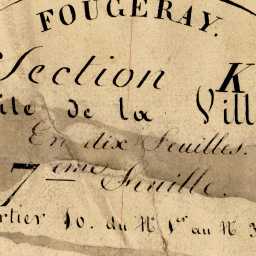 FOUGERAY.
Section K
ite de la Vill
En dix Feuilles.
7ème Feuille.
rtier 10. du N° 1er au N. 3